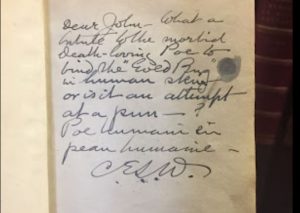 Dear John — What a
tribute to the morbid
death-loving Poe to
bind the "Gold Bug"
in human skin
or is it an attempt
at a pun — ?
Poe humani in
peau humaine —